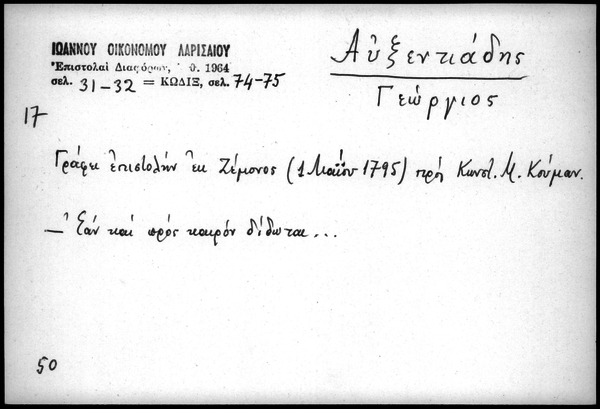 ΙΩΑΝΝΟΥ ΟΙΚΟΝΟΜΟΥ ΛΑΡΙΣΑΙΟΥ
Ἐπιστολαὶ Διαφόρων, 1964
σελ. 31-32 = ΚΩΔΙΞ, σελ. 74-75
Αὐξεντιάδης
Γεώργιος
17
Γράφει ἐπιστολὴν ἐκ Ζέμονος (1 Μαΐου 1795) πρὸς Κωνστ. Μ. Κούμαν.
— Ἐάν καὶ πρὸς καιρόν δίδωται...
50